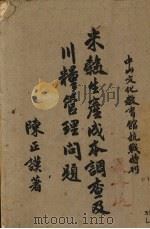 中山文化教育館抗戰特刊
米穀生產成本調查及
川糧管理問題
陳正謨著